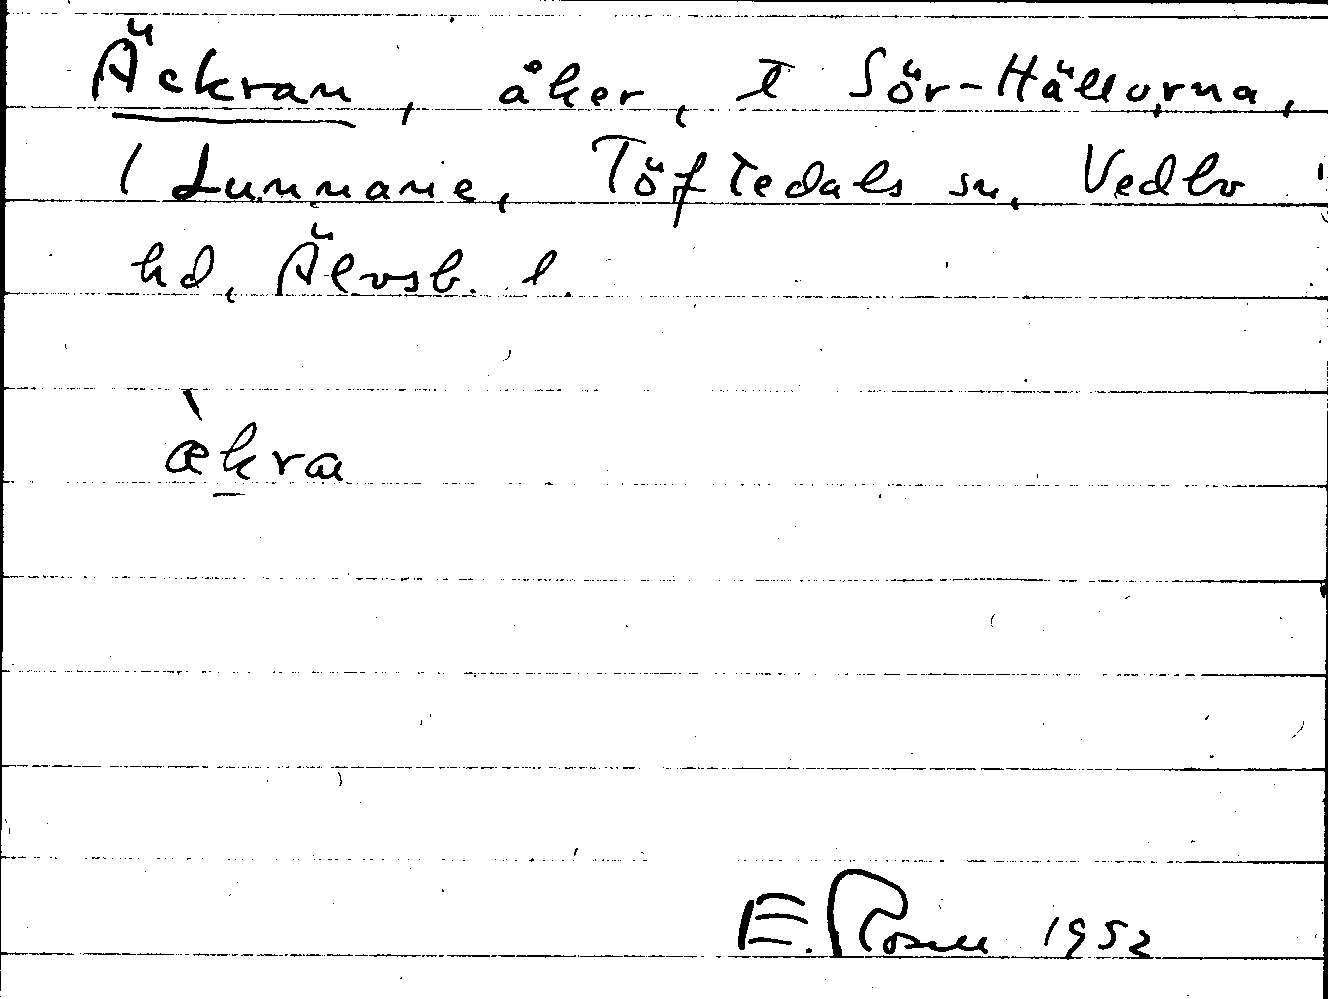 Äckran, åker, t Sör-Hällorna,
1 Lunnane, Töftedals sn, Vedbo
hd, Älvsb. l.
æ̀kra
E. Rosell 1952